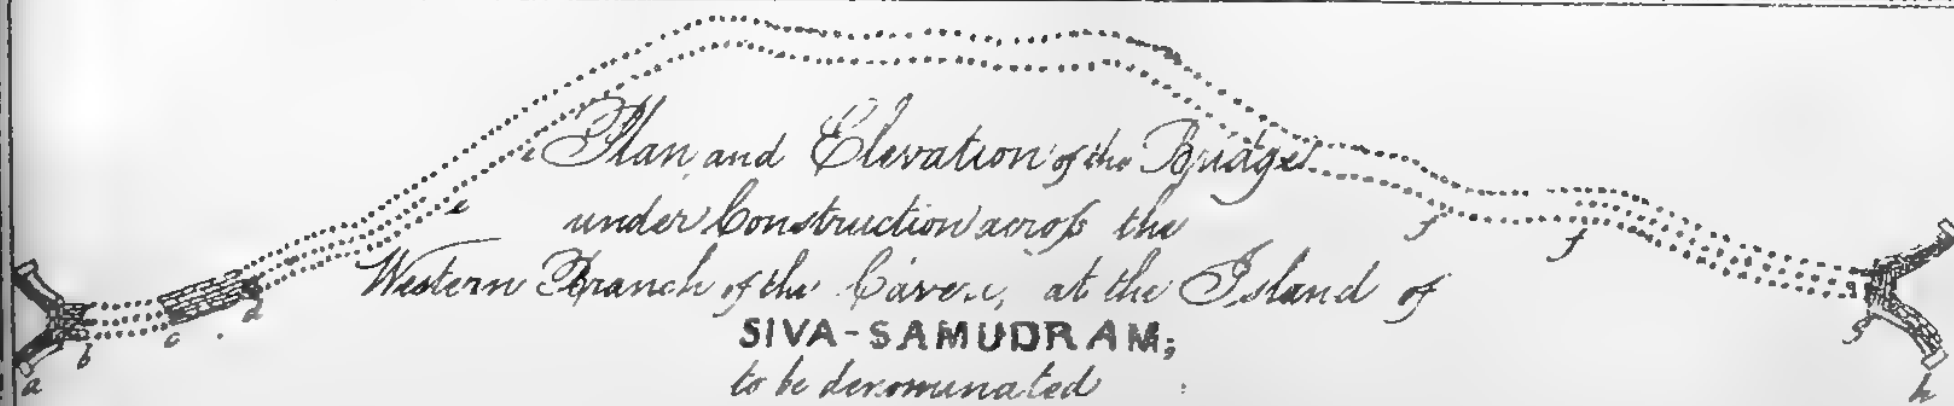 Plan and Elevation of the Bridge
under Construction across the
Western Branch of the Caveri, at the Island of
SIVA-SAMUDRAM;
to be denominated
a b c d e e f f g h